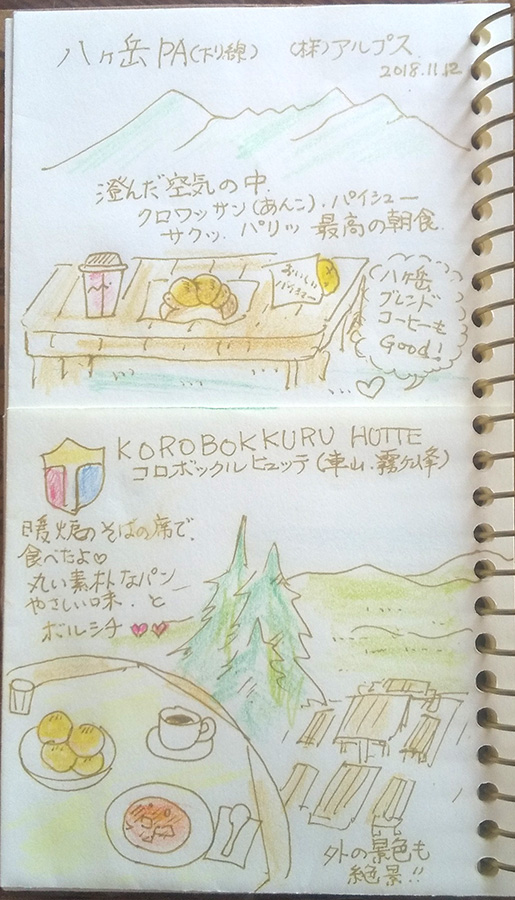 八ヶ岳PA(下り線) (株)アルプス
2018.11.12
澄んだ空気の中、
クロワッサン(あんこ)、パイシュー
サクッ、パリッ 最高の朝食、
おいしい
パイシュー
八ヶ岳
ブレンド
コーヒーも
Good!
KOROBOKKURU HÜTTE
コロボックルヒュッテ(車山・霧ヶ峰)
暖炉のそばの席で、
食べたよ♡
丸い素朴なパン
やさしい味、と
ボルシチ♥♥
外の景色も
絶景!!